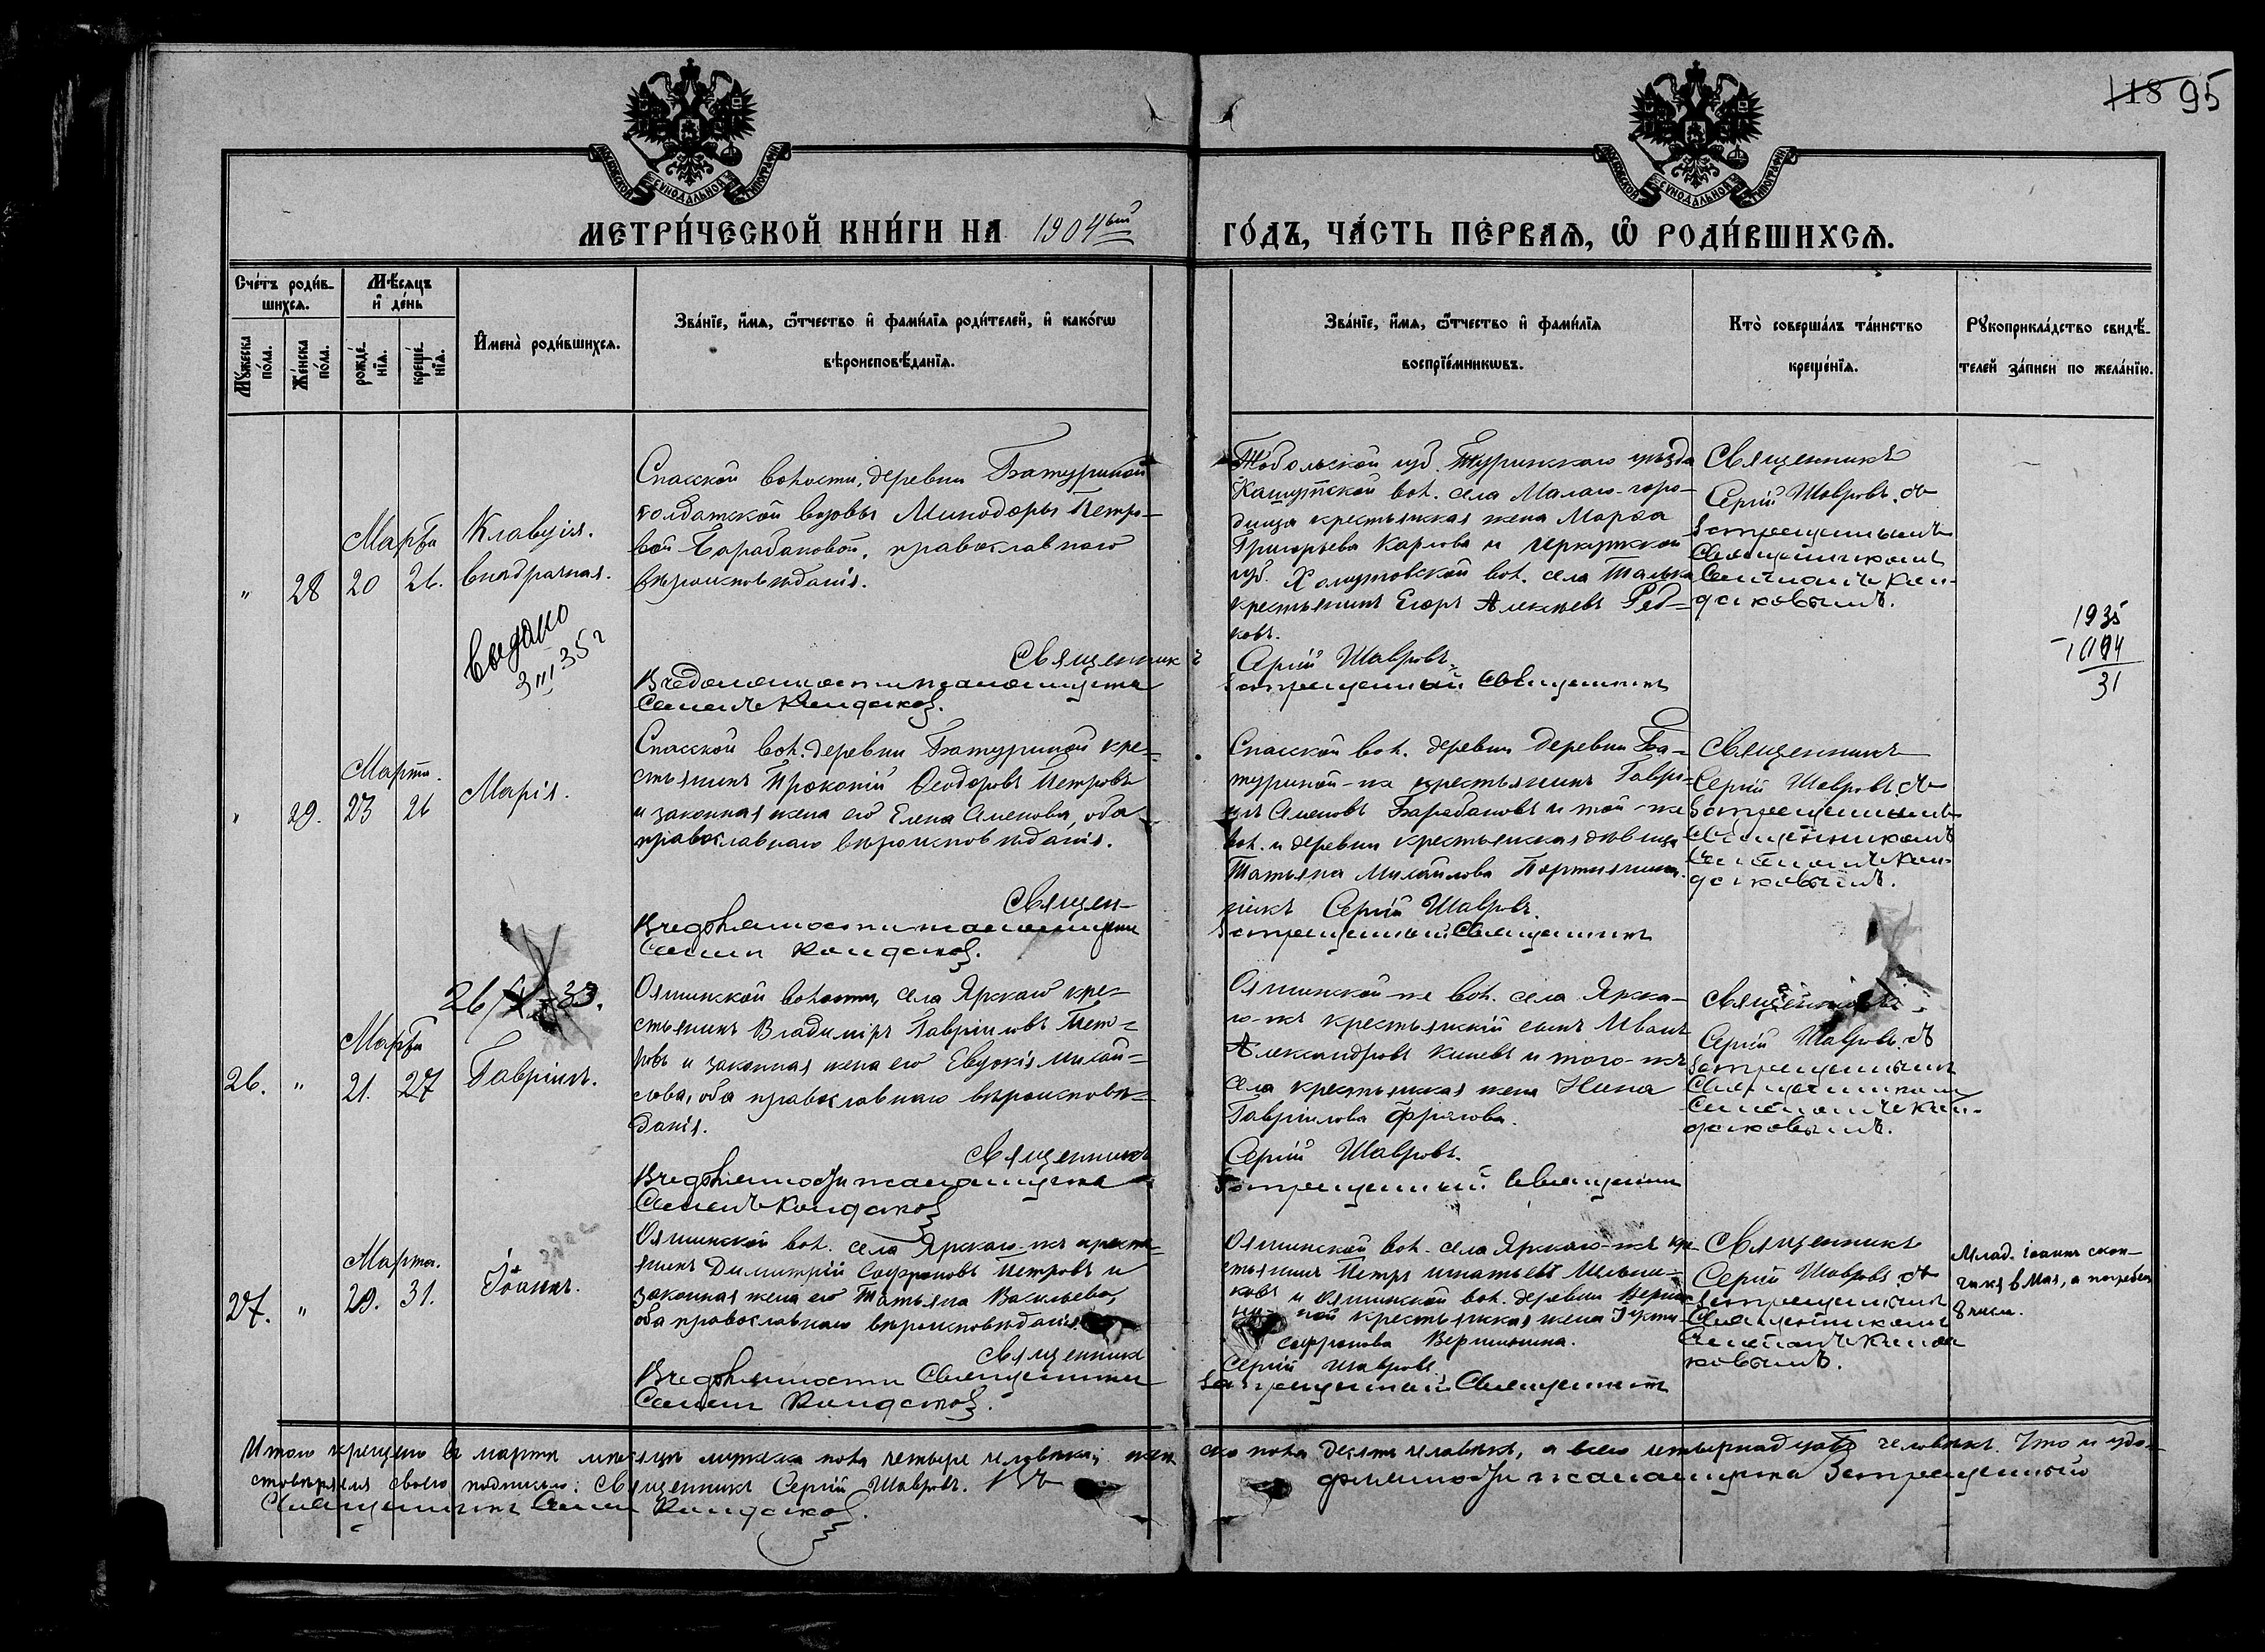 118 95
МОСКОВСКОЙ СѴНОДАЛЬНОЙ ТИПОГРАФІИ
МОСКОВСКОЙ СѴНОДАЛЬНОЙ ТИПОГРАФІИ
МЕТРИ́ЧЕСКОЙ КНИ́ГИ НА 1904ый ГО́ДЪ, ЧА́СТЬ ПЕ́РВАѦ, Ѡ҆ РОДИ́ВШИХСѦ.
Сче́тъ роди́в-
шихсѧ.
Мꙋ́жеска по́ла.
Же́нска по́ла.
Мѣ́сѧцъ
и҆ де́нь
рожде́-
нїѧ.
креще́-
нїѧ.
И҆мена̀ роди́вшихсѧ.
Зва́нїе, и҆́мѧ, ѻ҆́тчество и҆ фами́лїѧ роди́телей, и҆ како́гѡ
вѣроисповѣ́данїѧ.
Зва́нїе, и҆́мѧ, ѻ҆́тчество и҆ фами́лїѧ
воспрїе́мникѡвъ.
Кто̀ соверша́лъ та́инство
креще́нїѧ.
Рꙋкоприкла́дство свидѣ́-
телей за́писи по жела́нїю.
"
28
Марта
20 26.
Клавдія.
внебрачная.
Выдано
3 III 35 г
Спасской волости, деревни Батуриной
солдатской вдовы Минодоры Петро-
вой Барабановой, православнаго
вѣроисповѣданія.
Священникъ
Въ должности псаломщика
Семенъ Кандаков.
Тобольской губ. Туринскаго уѣзда
Кашутской вол. села Малаго-горо-
дища крестьянская жена Марѳа
Григорьева Карпова и Иркутской
губ. Хомутовской вол. села Талька
крестьянинъ Егоръ Алексѣевъ Ряб-
ковъ.
Сергій Шавровъ.
Запрещенный священникъ
Священникъ
Сергій Шавровъ. съ
запрещеннымъ
Священникомъ
Семеномъ Кан-
даковымъ.
1935
- 1904
31
"
29.
Марта.
23 26
Марія.
Спасской вол. деревни Батуриной кре-
стьянинъ Прокопій Ѳеодоровъ Петровъ
и законная жена его Елена Семенова, оба
православнаго вѣроисповѣданія.
Священ-
Въ должности псаломщика
Семенъ Кандаков.
Спасской вол. деревни деревни Ба-
туриной-же крестьянинъ Гаврі-
илъ Семеновъ Барабановъ и той-же
вол. и деревни крестьянская дѣвица
Татьяна Михайлова
никъ Сергій Шавровъ.
Запрещенный Священникъ
Священникъ
Сергій Шавровъ. съ
Запрещеннымъ
Священникомъ
Семеномъ Кан-
даковымъ.
26.
"
Марта
21. 27
26/ 33.
Гавріилъ.
Оякинской волости, села Ярскаго кре-
стьянинъ Владиміръ Гавріиловъ Пет-
ровъ и законная жена его Евдокія Михай-
лова, оба православнаго вѣроисповѣ-
данія.
Священникъ
Въ должности псаломщика
Семенъ Кандаков
Оякинской-же вол. села Ярска-
го-же крестьянскій сынъ Иванъ
Александровъ и того-же
села крестьянская жена Нина
Гавріилова Фролова.
Сергій Шавровъ.
Запрещенный Священникъ
Священникъ
Сергій Шавровъ. съ
Запрещеннымъ
Священникомъ
Семеномъ Кан-
даковымъ.
27.
"
Марта.
29. 31.
Іоаннъ.
Оякинской вол. села Ярскаго-же кресть-
янинъ Димитрій Софроновъ Петровъ и
законная жена его Татьяна Васильева,
оба православнаго вѣроисповѣданія.
Священникъ
Въ должности Священникъ
Семенъ Кандаков.
Оякинской вол. села Ярскаго-же кре-
стьянинъ Петръ Игнатьевъ
ковъ и Оякинской вол. деревни
ной крестьянская жена
Софронова Вершинина.
Сергій Шавровъ
Запрещенный Священникъ
Священникъ
Сергій Шавровъ. съ
Запрещеннымъ
Священникомъ
Семеномъ Канда
ковымъ.
Млад. Іоаннъ скон-
чался в Мая, а погребен
8 числа.
Итого крещено въ мартѣ мѣсяцѣ мужеска пола четыре человѣка; жен ска пола десять человѣкъ, а всего четырнадцать человѣкъ. Что и удо-
стовѣряемъ своею подписью: Священникъ Сергій Шавровъ. Въ должности псаломщика Запрещенный
Священникъ Семенъ Кандаков.